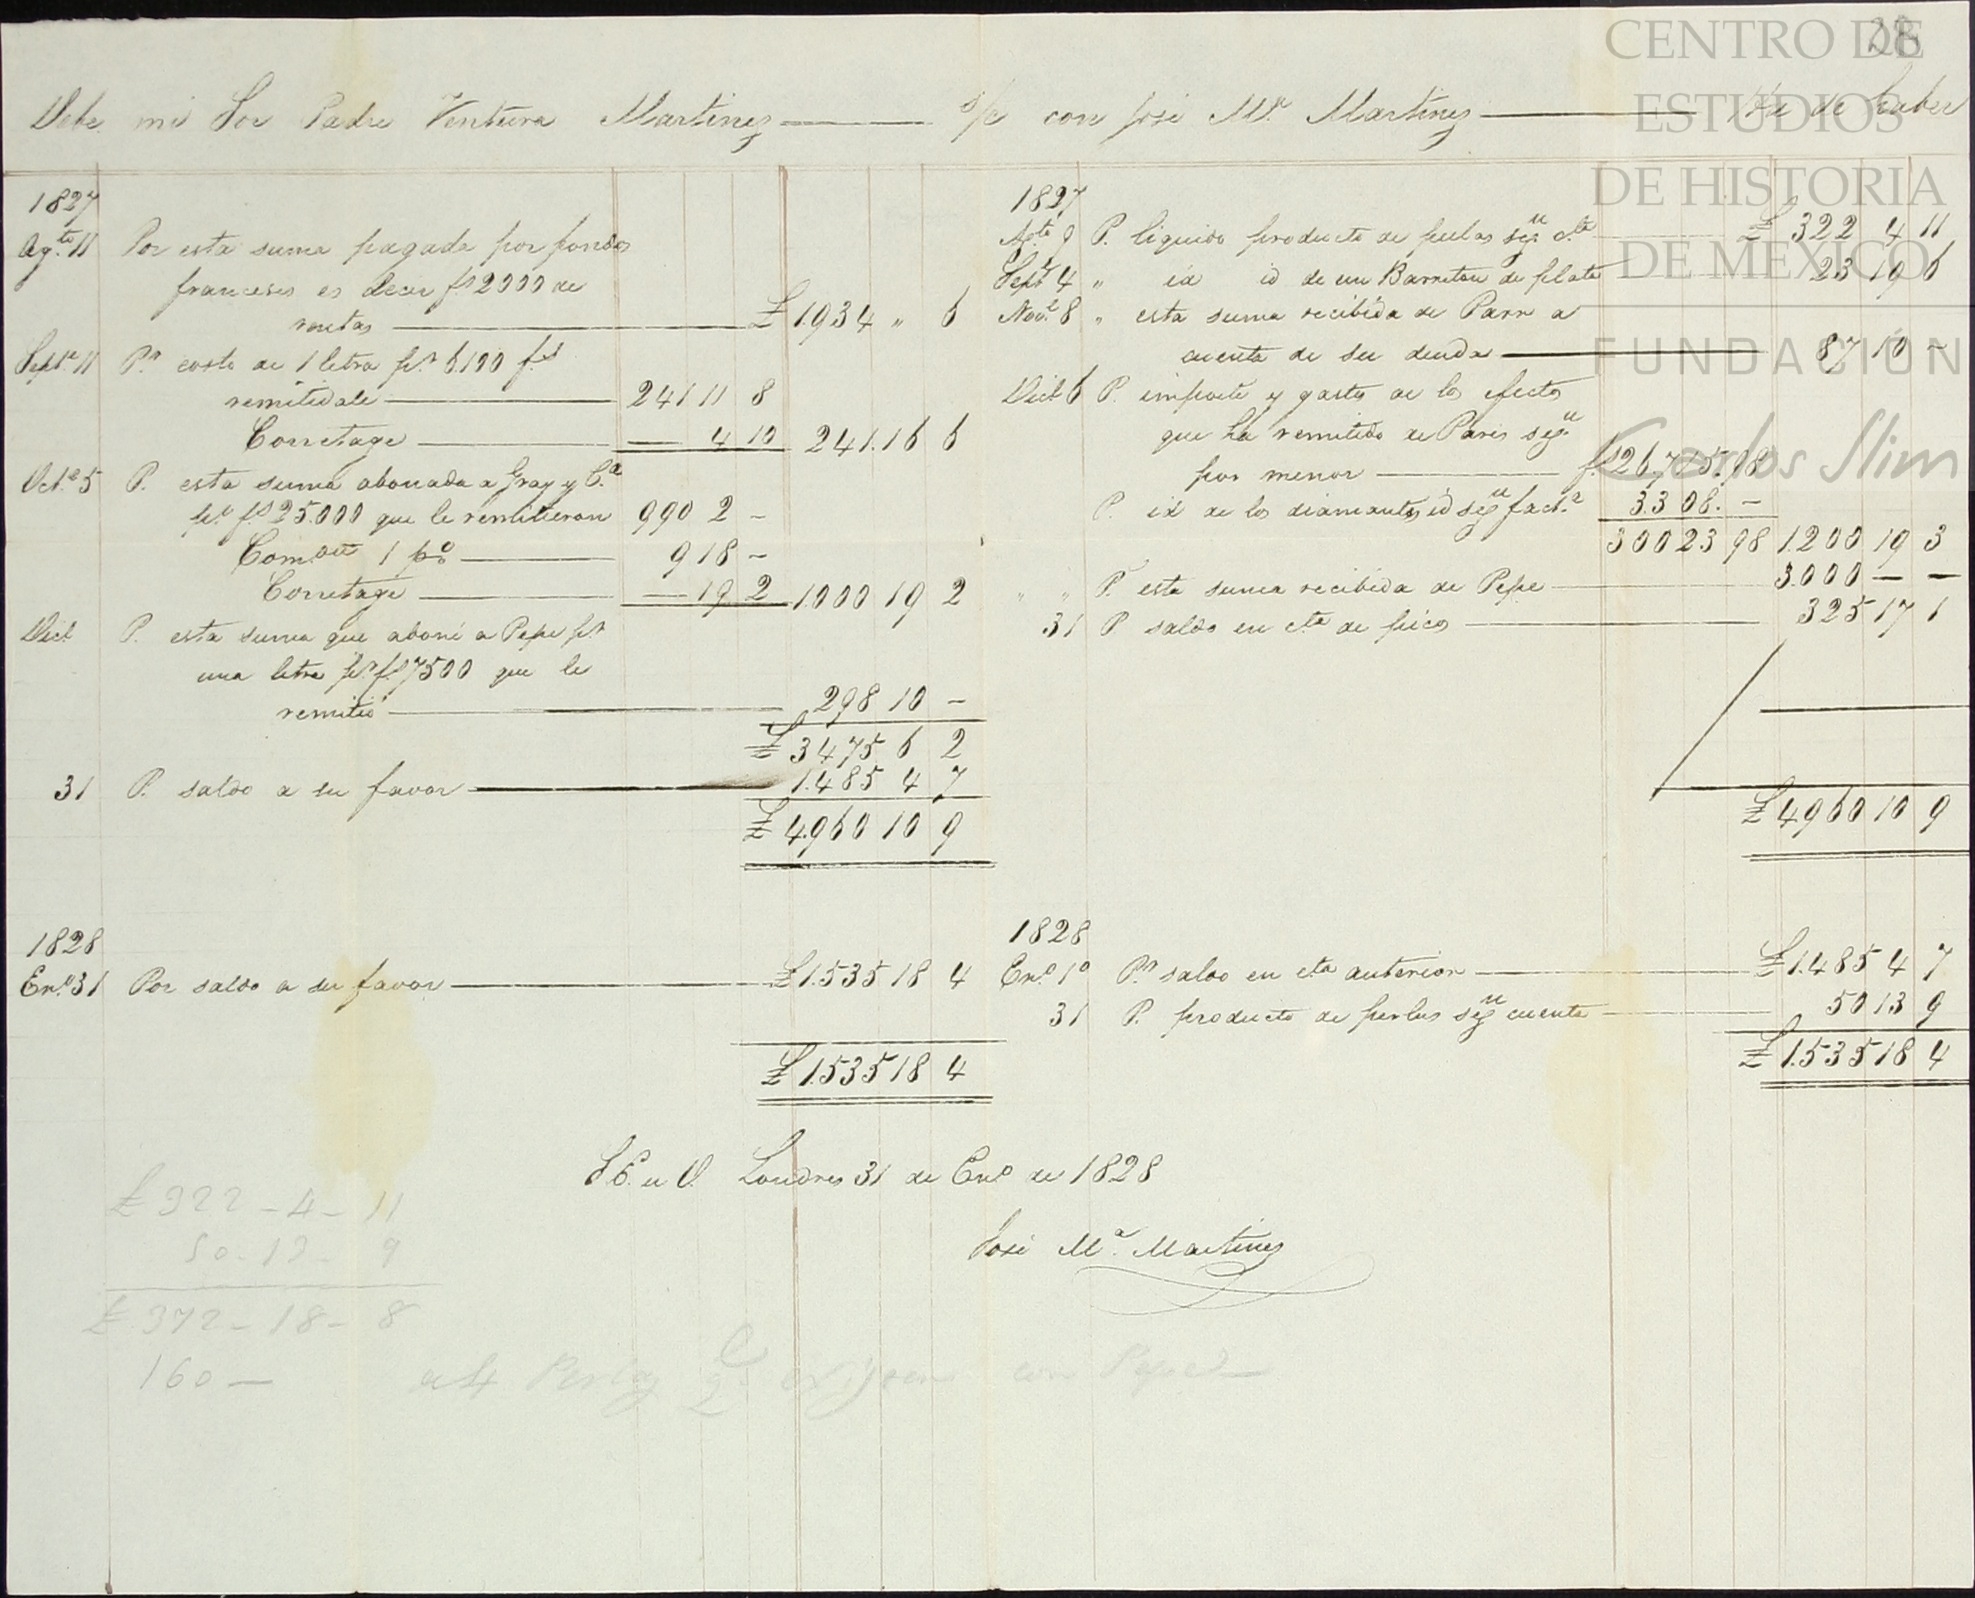 28
Debe mi Sor Padre Ventura Martinez s/c con José Ma. Martinez Ha de haber
1827
Agto. 11 Por esta suma pagada por fondos
franceses es decir fs 2000 de
rentas £ 1934 " 6
Septe. 11 Pr. costo de 1 letra pr. 6.100 fs
remitidale 241 11 8
Corretage — 4 10 241.16 6
Octe. 5 P. esta suma abonada a Gray y Ca.
pr. fs 25.000 que le remitieron 990 2 -
Comon 1 p%o 9 18 -
Corretage — 19 2 1000 19 2
Dice. P. esta suma que aboné a Pepe pr.
una letra pr. fs 7500 que le
remitió 298 10 -
£ 3475 6 2
31 P. saldo a su favor 1.485 4 7
£ 4.960 10 9
1827
Agto. 9 P. liquido producto de perlas segn cta £ 322 4 11
Sepe. 4 " id id de un Barreton de plata 23 19 6
Nove. 8 " esta suma recibida de Parr a
cuenta de su deuda 87 10 -
Dice. 6 P. importe y gasto de los efectos
que ha remitido de Paris segn
por menor fs 26.715.98
P. id de los diamantes id segn facta. 3.308. -
30023 98 1.200 19 3
" " P. esta suma recibida de Pepe 3.000 — —
31 P saldo en cta de picos 325 17 1
£ 4960 10 9
1828
Eno. 31 Por saldo a su favor £ 1.535 18 4
£ 1.535 18 4
1828
Eno. 1o Pr. saldo en cta anterior £ 1.485 4 7
31 P. producto de perlas segn cuenta 50 13 9
£ 1.535 18 4
S. E. u O. Londres 31 de Eno. de 1828
José Ma. Martinez
£ 322 - 4 - 11
50 - 13 - 9
£ 372 - 18 - 8
160 — Perlas qe. con Pepe
CENTRO DE
ESTUDIOS
DE HISTORIA
DE MÉXICO
FUNDACIÓN
Carlos Slim